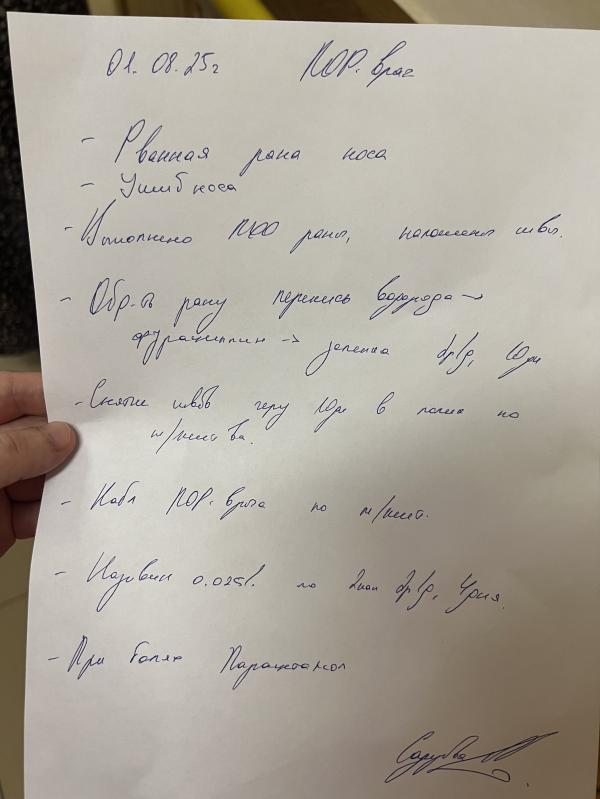 01.08.25г ЛОР-врач
- Рванная рана носа
- Ушиб носа
- Выполнено ПХО раны, наложены швы.
- Обр-ть рану перекись водорода →
фурациллин → зеленка 2р/д, 10дн
- Снятие швов через 10дн в полик по
м/жит-ва.
- Набл ЛОР-врача по м/жит.
- Називин 0.025% по 2кап 2р/д, 4дня.
- При болях Парацетамол